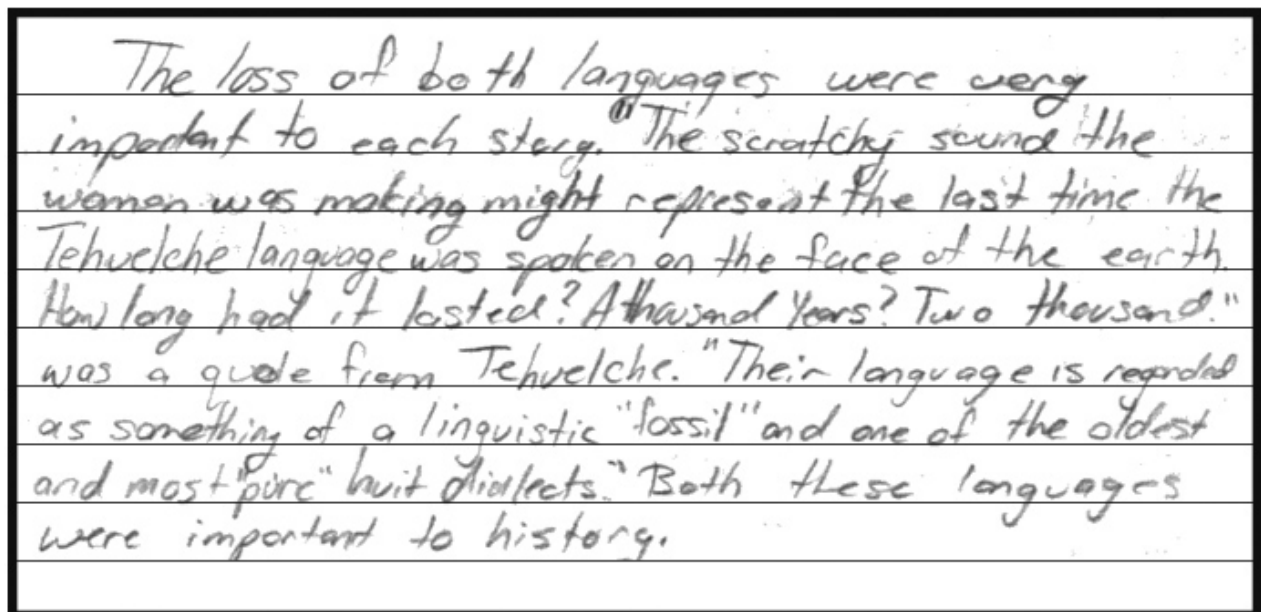 The loss of both languages were very
important to each story. "The scratchy sound the
women was making might represent the last time the
Tehuelche language was spoken on the face of the earth.
How long had it lasted? A thousand Years? Two thousand."
was a quote from Tehuelche. "Their language is regarded
as something of a linguistic "fossil" and one of the oldest
and most "pure" Inuit dialects." Both these languages
were important to history.